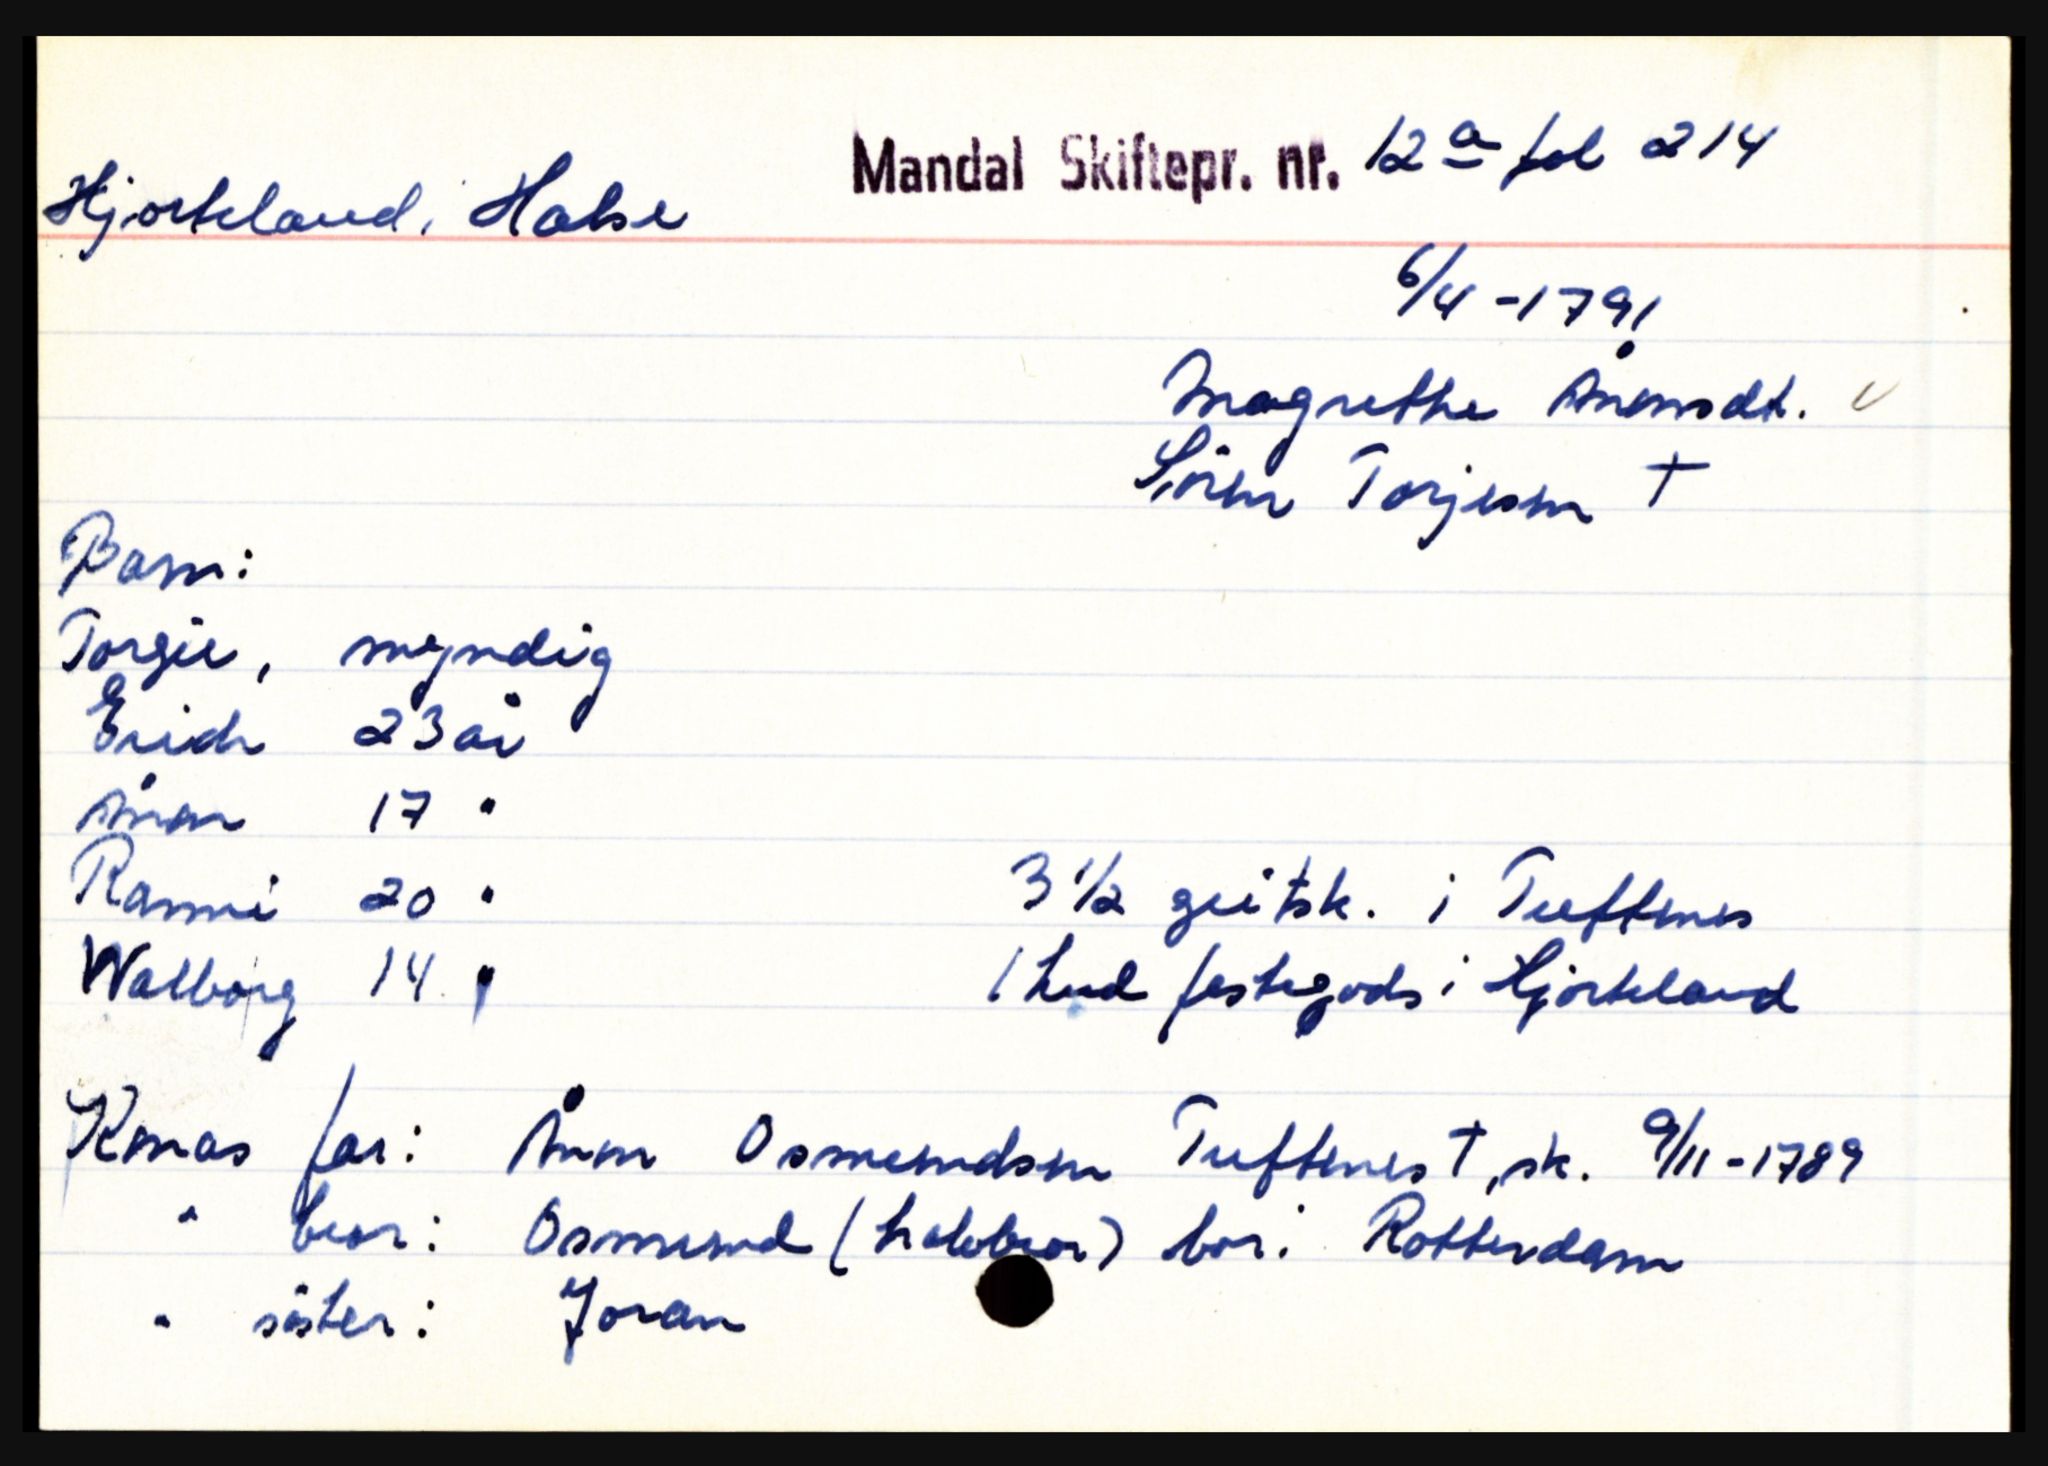 Mandal Skiftepr. nr. 12a fol 214
Hjorteland, Halse
6/4-1791
Magrethe Ånensdt.
Sören Torjesen †
Barn:
Torgie, myndig
Erich 23 år
Ånen 17 "
Ranni 20 "
Walborg 14 "
3 1/2 geitsk. i Tuftenes
1 hud festegods i Hjorteland
Konas far: Ånen Osmundsen Tuftenes †, sk. 9/11-1789
" bror: Osmund (halvbror) bor i Rotterdam
" söster: Joran